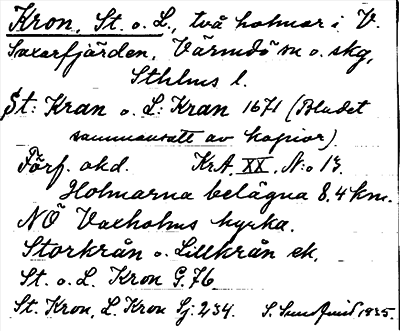 Kron, St. o. L., två holmar i V.
Saxarfjärden, Värmdö sn o. skg,
Sthlms l.
St: Kran o. L: Kran 1671 (Bladet
sammansatt av kopior)
Förf. okd. KrA, XX, N:o 13.
Holmarna belägna 8,4 km.
NÖ Vaxholms kyrka.
Storkrån o. Lillkrån ek,
St. o. L. Kron G. 76
St. Kron, L. Kron Sj: 234. S. Sundquist 1935.